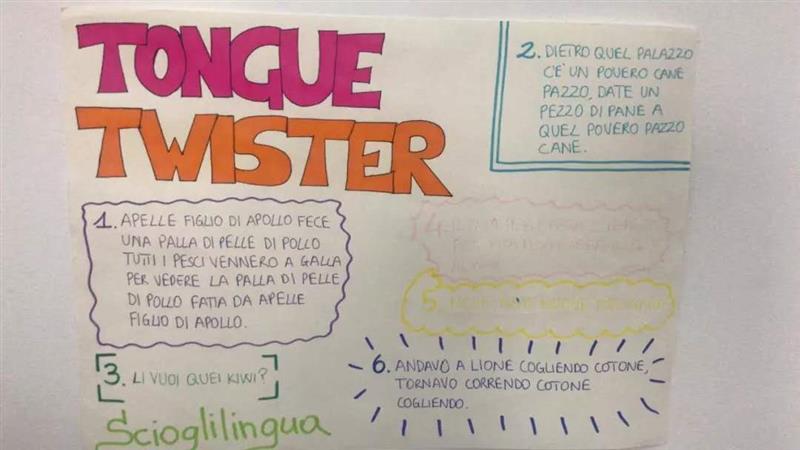 TONGUE
TWISTER
1. APELLE FIGLIO DI APOLLO FECE
UNA PALLA DI PELLE DI POLLO
TUTTI I PESCI VENNERO A GALLA
PER VEDERE LA PALLA DI PELLE
DI POLLO FATTA DA APELLE
FIGLIO DI APOLLO.
2. DIETRO QUEL PALAZZO
C'È UN POVERO CANE
PAZZO, DATE UN
PEZZO DI PANE A
QUEL POVERO PAZZO
CANE.
3. LI VUOI QUEI KIWI?
4.
5.
6. ANDAVO A LIONE COGLIENDO COTONE,
TORNAVO CORRENDO COTONE
COGLIENDO.
Scioglilingua